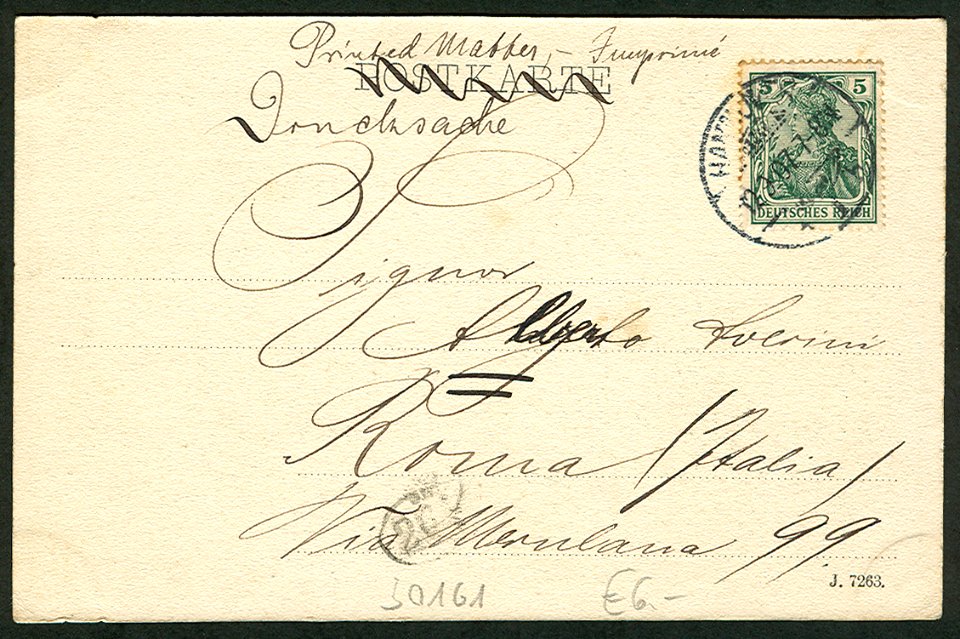 Printed Matter, – Imprimé
POSTKARTE
Drucksache
5 5
DEUTSCHES REICH
Signor
Alberto
Roma (Italia)
Via Merulana 99
J. 7263.
30161
£6.-